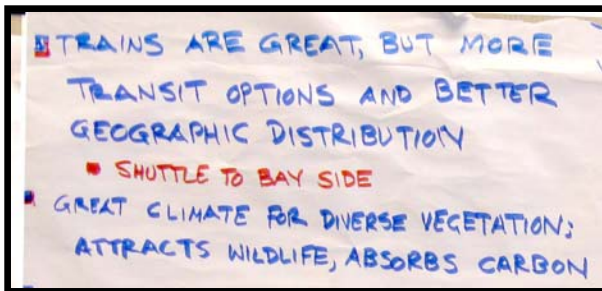 TRAINS ARE GREAT, BUT MORE
TRANSIT OPTIONS AND BETTER
GEOGRAPHIC DISTRIBUTION
• SHUTTLE TO BAY SIDE
• GREAT CLIMATE FOR DIVERSE VEGETATION;
ATTRACTS WILDLIFE, ABSORBS CARBON